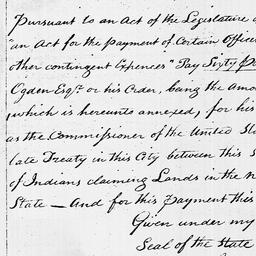 Pursuant to an Act of the Legislature
an Act for the payment of Certain Office
other contingent Expences" Pay Sixty
Ogden Esqr. or his Order, being the Amo
which is hereunto annexed, for his
as the Commissioner of the United Sta
late Treaty in this City between this S
of Indians claiming Lands in the n
State — And for this Payment this
Given under my
Seal of the State